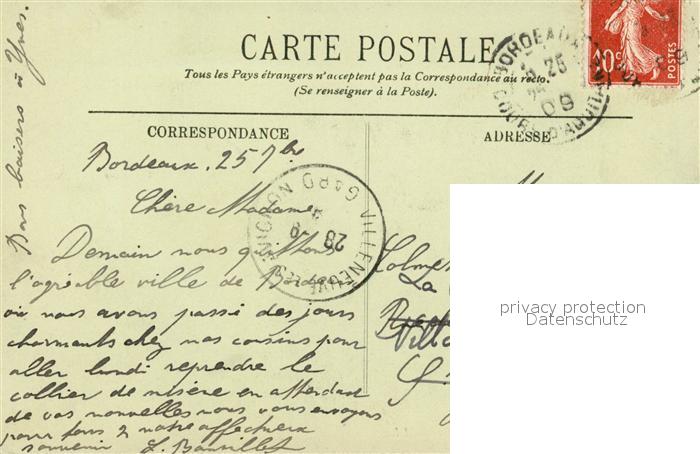 CARTE POSTALE
Tous les Pays étrangers n'acceptent pas la Correspondance au recto.
(Se renseigner à la Poste).
CORRESPONDANCE
ADRESSE
Bons baisers à Yves.
Bordeaux. 25 7bre
Chère Madame
Demain nous quittons
l'agréable ville de Bordeaux
où nous avons passé des jours
charmants chez nos cousins pour
aller lundi reprendre le
collier de misère en attendant
de vos nouvelles nous vous envoyons
pour tous 2 notre affectueux
souvenir
La
Villa
BORDEAUX
25
09
COURS D'AQUITAINE
VILLENEUVE-LES-AVIGNON GARD
28 -9
10c
POSTES
privacy protection
Datenschutz